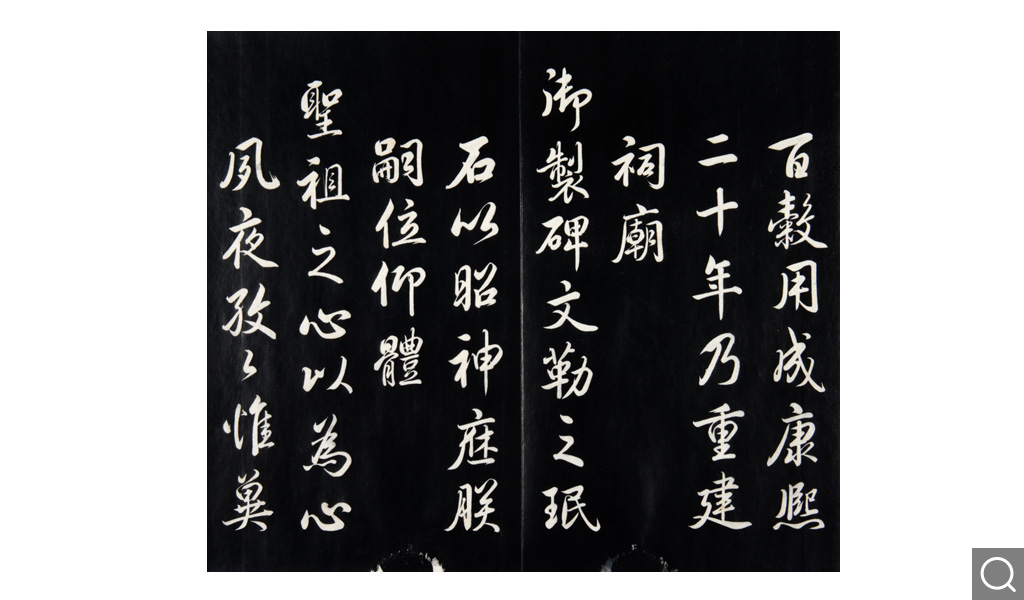 百穀用成康熙
二十年乃重建
祠廟
御製碑文勒之珉
石以昭神庥朕
嗣位仰體
聖祖之心以為心
夙夜孜〻惟冀